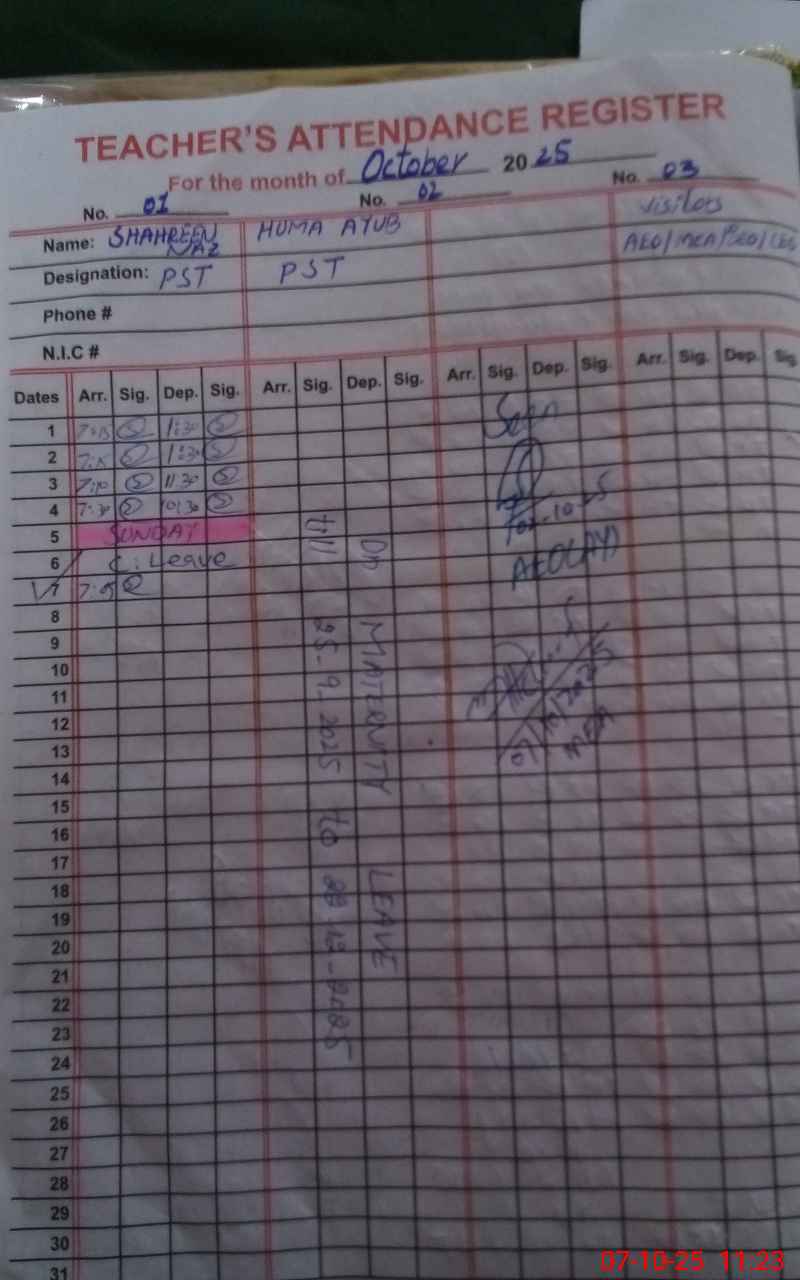 TEACHER'S ATTENDANCE REGISTER
For the month of October 2025
No. 01 No. 02 No. 03
Name: SHAHREEN NAZ HUMA AYUB Visitors
Designation: PST PST AEO/MEA/
Phone #
N.I.C #
Dates Arr. Sig. Dep. Sig. Arr. Sig. Dep. Sig. Arr. Sig. Dep. Sig. Arr. Sig. Dep. Sig
1 7:15 1:30 Seen
2 7:15 1:30
3 7:10 11:30
4 7:30 10:30 02-10-25
5 SUNDAY
6 C. Leave
7
8
9
10
11
12
13
14
15
16
17
18
19
20
21
22
23
24
25
26
27
28
29
30
31
On MATERNITY LEAVE
till 25.9.2025 to
07-10-25 11:23